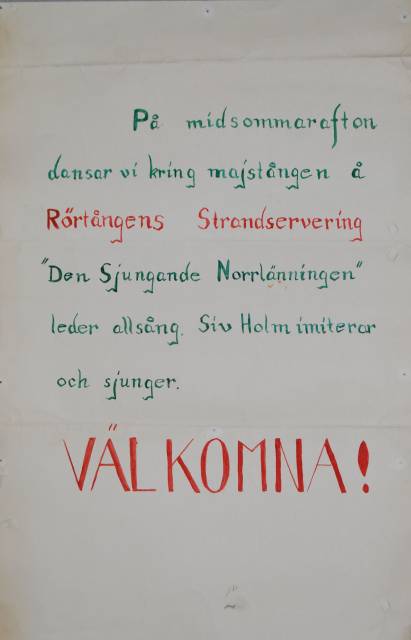 På midsommarafton
dansar vi kring majstången å
Rörtångens Strandservering
"Den Sjungande Norrlänningen"
leder allsång. Siv Holm imiterar
och sjunger.
VÄLKOMNA!